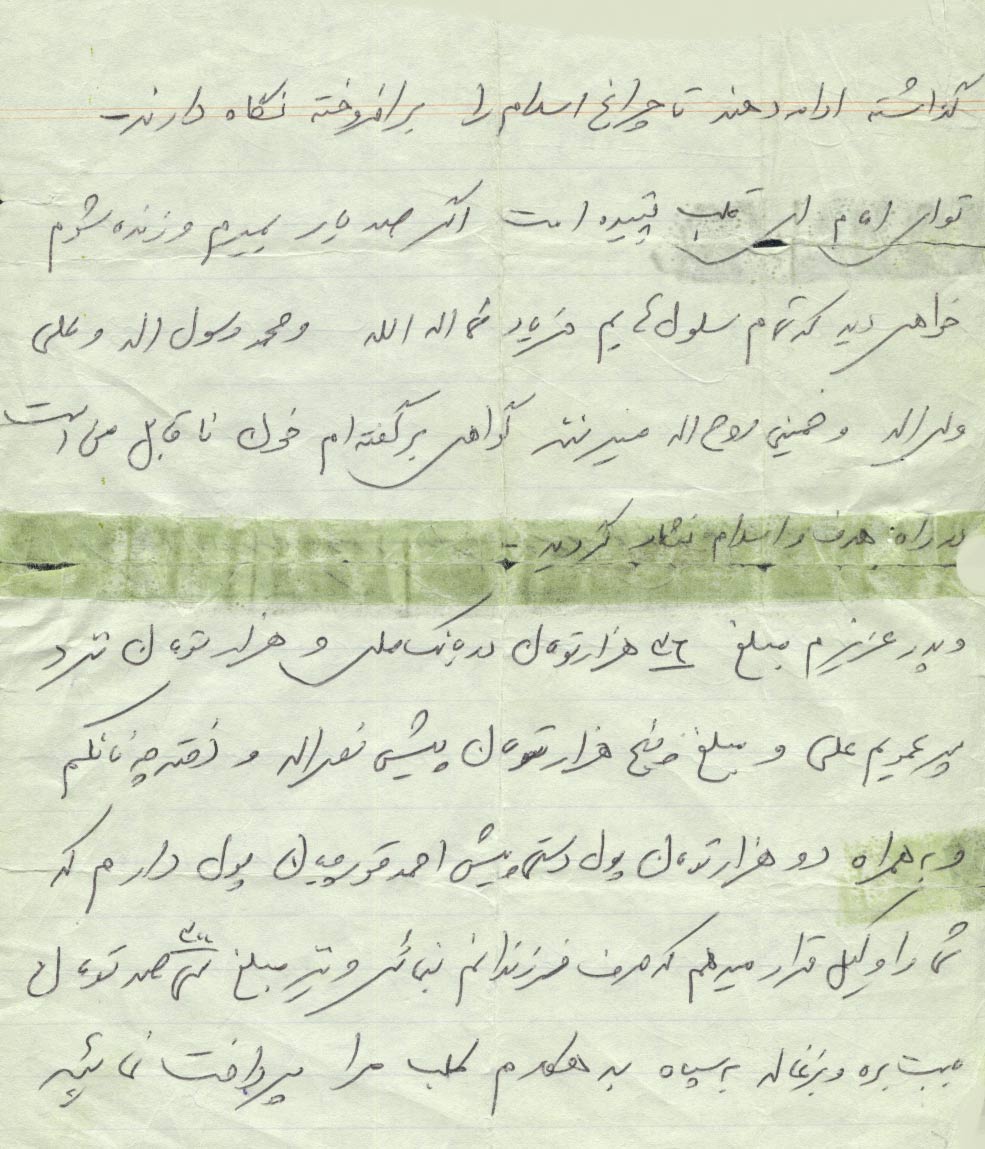 گذاشته ادامه دهند تا چراغ اسلام را برافروخته نگاه دارند
توای امام ای قلب تپیده امت اگر صد بار بمیرم و زنده شوم
خواهی دید که تمام سلول هایم فریاد الله و محمد رسول اله و علی
ولی اله و خمینی روح اله میزنند گواهی بر گفته ام خون ناقابل من است
در راه هدف و اسلام نثار گردید -
و پدر عزیزم مبلغ ۳۶ هزار تومان در بانک ملی و هزار تومان نزد
پسر عمویم علی و مبلغ پنج هزار تومان پیش نصراله و دفترچه بانکم
و به همراه دو هزار تومان پول دستی پیش احمد پول دارم که
شما را وکیل قرار میدهم که صرف فرزندانم نمائی و نیز مبلغ صد تومان
بابت بره و بزغاله به سپاه بدهکارم طلب مرا پرداخت نمائید